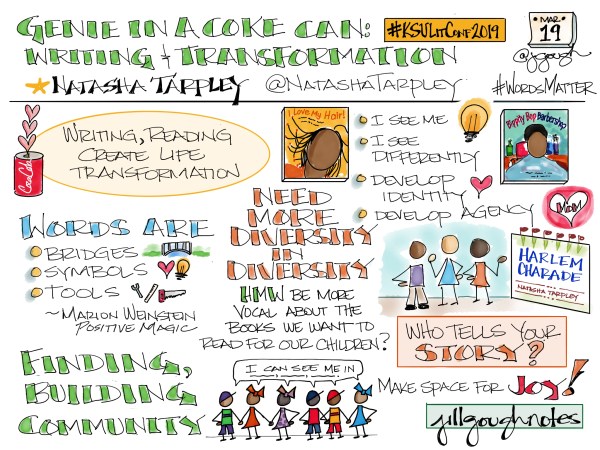 GENIE IN A COKE CAN:
WRITING + TRANSFORMATION
#KSULitConf2019
MAR
19
@jgough
NATASHA TARPLEY @NATASHATARPLEY
#WORDSMATTER
WRITING, READING
CREATE LIFE
TRANSFORMATION
Coca Cola
I Love My Hair!
I SEE ME
I SEE
DIFFERENTLY
DEVELOP
IDENTITY
DEVELOP AGENCY
Bippity Bop Barbershop
MOM
WORDS ARE
BRIDGES
SYMBOLS
TOOLS
~MARION WEINSTEIN
POSITIVE MAGIC
NEED
MORE
DIVERSITY
IN
DIVERSITY
HMW BE MORE
VOCAL ABOUT THE
BOOKS WE WANT TO
READ FOR OUR CHILDREN?
HARLEM
CHARADE
NATASHA TARPLEY
WHO TELLS YOUR
STORY?
FINDING,
BUILDING
COMMUNITY
I CAN SEE ME IN
MAKE SPACE FOR JOY!
jillgoughnotes